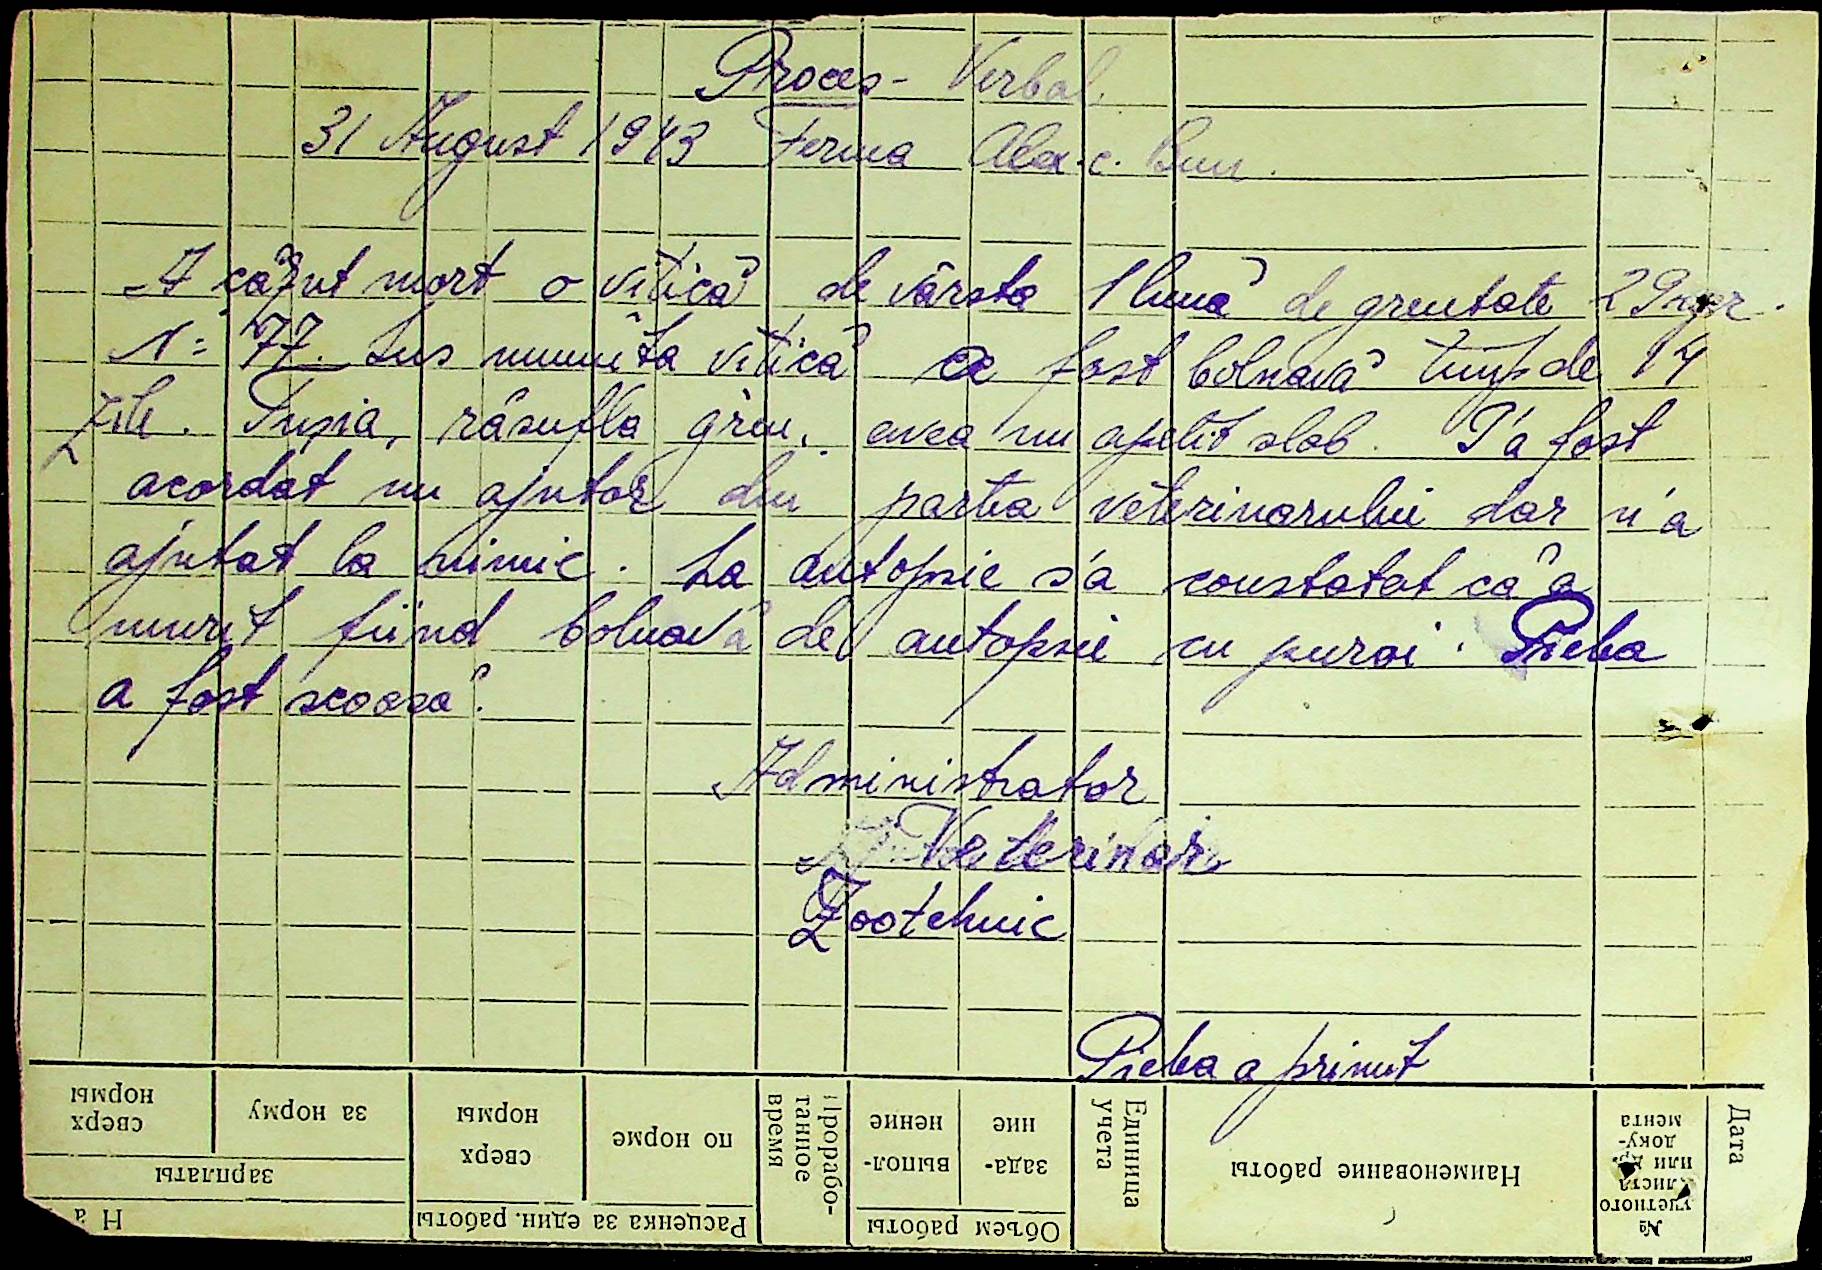 Proces- Verbal.
31 August 1943 Ferma Alex. c. Bun.
A căzut mort o vițică de vârsta 1 lună de greutate 29 kgr.
N= 77. Sus numita vițică a fost bolnavă timp de 14
zile. Tușia, răsufla greu, avea un apetit slab. I'a fost
acordat un ajutor din partea veterinarului dar n'a
ajutat la nimic. La autopsie s'a constatat că a
murit fiind bolnavă de autopsie cu puroi. Pielea
a fost scoasă.
Administrator
Veterinar
Zootehnic
Pielea a primit
сверх нормы
за норму
зарплаты
На
сверх нормы
по норме
Расценка за един. работы
Прорабо-
танное
время
выпол-
нение
зада-
ние
Объем работы
Единица
учета
Наименование работы
№
учетного
листа
или др.
доку-
мента
Дата